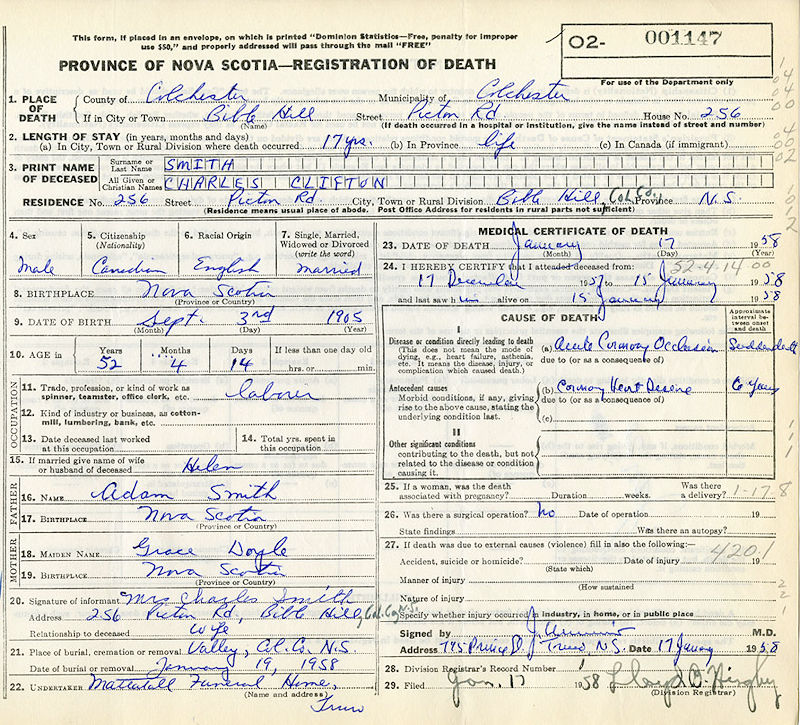 This form, if placed in an envelope, on which is printed "Dominion Statistics—Free, penalty for improper
use $50," and properly addressed will pass through the mail "FREE"
O2- 001147
PROVINCE OF NOVA SCOTIA—REGISTRATION OF DEATH
For use of the Department only
1. PLACE OF DEATH
County of Colchester Municipality of Colchester
If in City or Town Bible Hill Street Picton Rd. House No. 256
(Name) (If death occurred in a hospital or institution, give the name instead of street and number)
2. LENGTH OF STAY (in years, months and days)
(a) In City, Town or Rural Division where death occurred 17 yrs. (b) In Province life (c) In Canada (if immigrant)
3. PRINT NAME OF DECEASED
Surname or Last Name SMITH
All Given or Christian Names CHARLES CLIFTON
RESIDENCE No. 256 Street Picton Rd. City, Town or Rural Division Bible Hill, Col. Co. Province N.S.
(Residence means usual place of abode. Post Office Address for residents in rural parts not sufficient)
4. Sex
Male
5. Citizenship
(Nationality)
Canadian
6. Racial Origin
English
7. Single, Married, Widowed or Divorced
(write the word)
married
8. BIRTHPLACE Nova Scotia
(Province or Country)
9. DATE OF BIRTH Sept. 3rd 1905
(Month) (Day) (Year)
10. AGE in
Years Months Days If less than one day old
52 4 14 hrs. or min.
OCCUPATION
11. Trade, profession, or kind of work as
spinner, teamster, office clerk, etc. laborer
12. Kind of industry or business, as cotton-
mill, lumbering, bank, etc.
13. Date deceased last worked
at this occupation
14. Total yrs. spent in
this occupation
15. If married give name of wife
or husband of deceased Helen
FATHER
16. NAME Adam Smith
17. BIRTHPLACE Nova Scotia
(Province or Country)
MOTHER
18. MAIDEN NAME Grace Doyle
19. BIRTHPLACE Nova Scotia
(Province or Country)
20. Signature of informant Mrs Charles Smith
Address 256 Picton Rd, Bible Hill, Col. Co, N.S.
Relationship to deceased wife
21. Place of burial, cremation or removal Valley, Col. Co. N.S.
Date of burial or removal January 19, 1958
22. UNDERTAKER Mattatall Funeral Home,
(Name and address)
Truro
MEDICAL CERTIFICATE OF DEATH
23. DATE OF DEATH January 17 1958
(Month) (Day) (Year)
24. I HEREBY CERTIFY that I attended deceased from: 32-4-14 00
17 December 1957 to 15 January 1958
and last saw him alive on 15 January 1958
CAUSE OF DEATH
Approximate interval between onset and death
I
Disease or condition directly leading to death
(This does not mean the mode of
dying, e.g., heart failure, asthenia,
etc. It means the disease, injury, or
complication which caused death.)
(a) Acute Coronary Occlusion
due to (or as a consequence of)
Antecedent causes
Morbid conditions, if any, giving
rise to the above cause, stating the
underlying condition last.
(b) Coronary Heart Disease 6 years
due to (or as a consequence of)
(c)
II
Other significant conditions
contributing to the death, but not
related to the disease or condition
causing it.
25. If a woman, was the death
associated with pregnancy? Duration weeks. Was there
a delivery? 1-17.8
26. Was there a surgical operation? no Date of operation 19
State findings Was there an autopsy?
27. If death was due to external causes (violence) fill in also the following:—
420.1
Accident, suicide or homicide? Date of injury 19
(State which)
Manner of injury
(How sustained
Nature of injury
Specify whether injury occurred in industry, in home, or in public place
Signed by M.D.
Address 775 Prince St. Truro, N.S. Date 17 January 1958
28. Division Registrar's Record Number 1
29. Filed Jan. 17 1958 Lloyd
(Division Registrar)